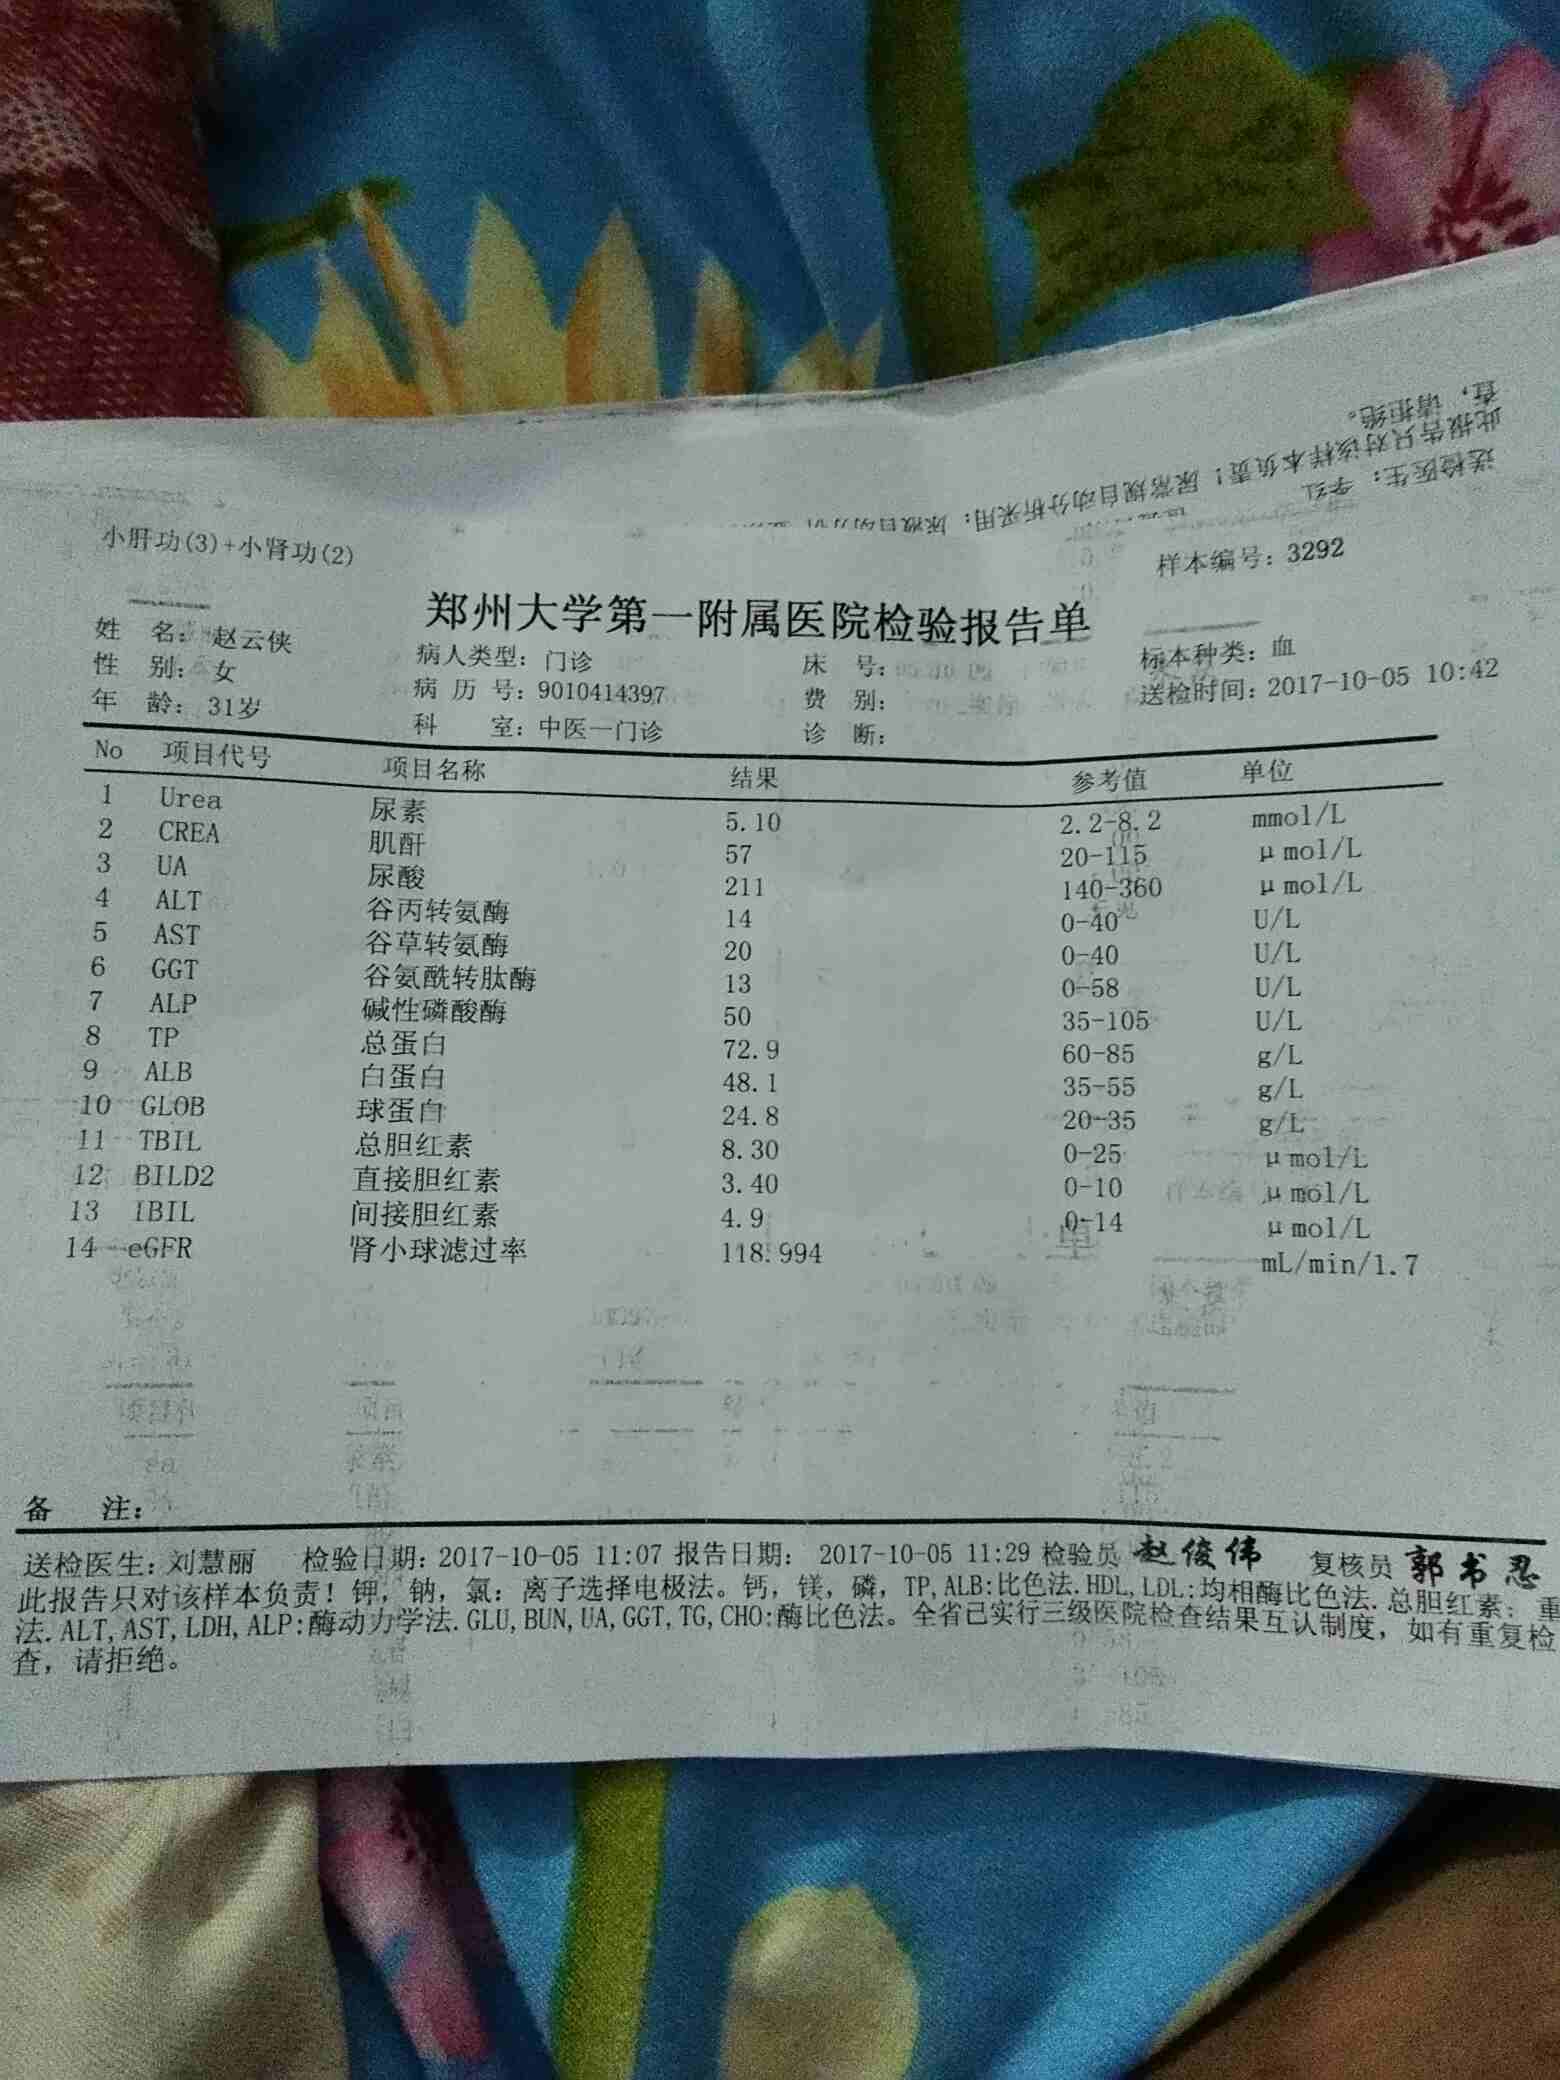 查，请拒绝。
此报告只对该样本负责！尿常规自动分析采用：尿液自动分析
送检医生： 李红
小肝功(3)+小肾功(2)
样本编号：3292
郑州大学第一附属医院检验报告单
姓 名：赵云侠 病人类型：门诊 床 号： 标本种类：血
性 别：女 病 历 号：9010414397 费 别： 送检时间：2017-10-05 10:42
年 龄：31岁 科 室：中医一门诊 诊 断：
No 项目代号 项目名称 结果 参考值 单位
1 Urea 尿素 5.10 2.2-8.2 mmol/L
2 CREA 肌酐 57 20-115 μmol/L
3 UA 尿酸 211 140-360 μmol/L
4 ALT 谷丙转氨酶 14 0-40 U/L
5 AST 谷草转氨酶 20 0-40 U/L
6 GGT 谷氨酰转肽酶 13 0-58 U/L
7 ALP 碱性磷酸酶 50 35-105 U/L
8 TP 总蛋白 72.9 60-85 g/L
9 ALB 白蛋白 48.1 35-55 g/L
10 GLOB 球蛋白 24.8 20-35 g/L
11 TBIL 总胆红素 8.30 0-25 μmol/L
12 BILD2 直接胆红素 3.40 0-10 μmol/L
13 IBIL 间接胆红素 4.9 0-14 μmol/L
14 eGFR 肾小球滤过率 118.994 mL/min/1.7
备 注：
送检医生：刘慧丽 检验日期：2017-10-05 11:07 报告日期： 2017-10-05 11:29 检验员 赵俊伟 复核员 郭书忍
此报告只对该样本负责！钾，钠，氯：离子选择电极法。钙，镁，磷，TP,ALB:比色法.HDL,LDL:均相酶比色法.总胆红素：重
法.ALT,AST,LDH,ALP:酶动力学法.GLU,BUN,UA,GGT,TG,CHO:酶比色法。全省已实行三级医院检查结果互认制度，如有重复检
查，请拒绝。